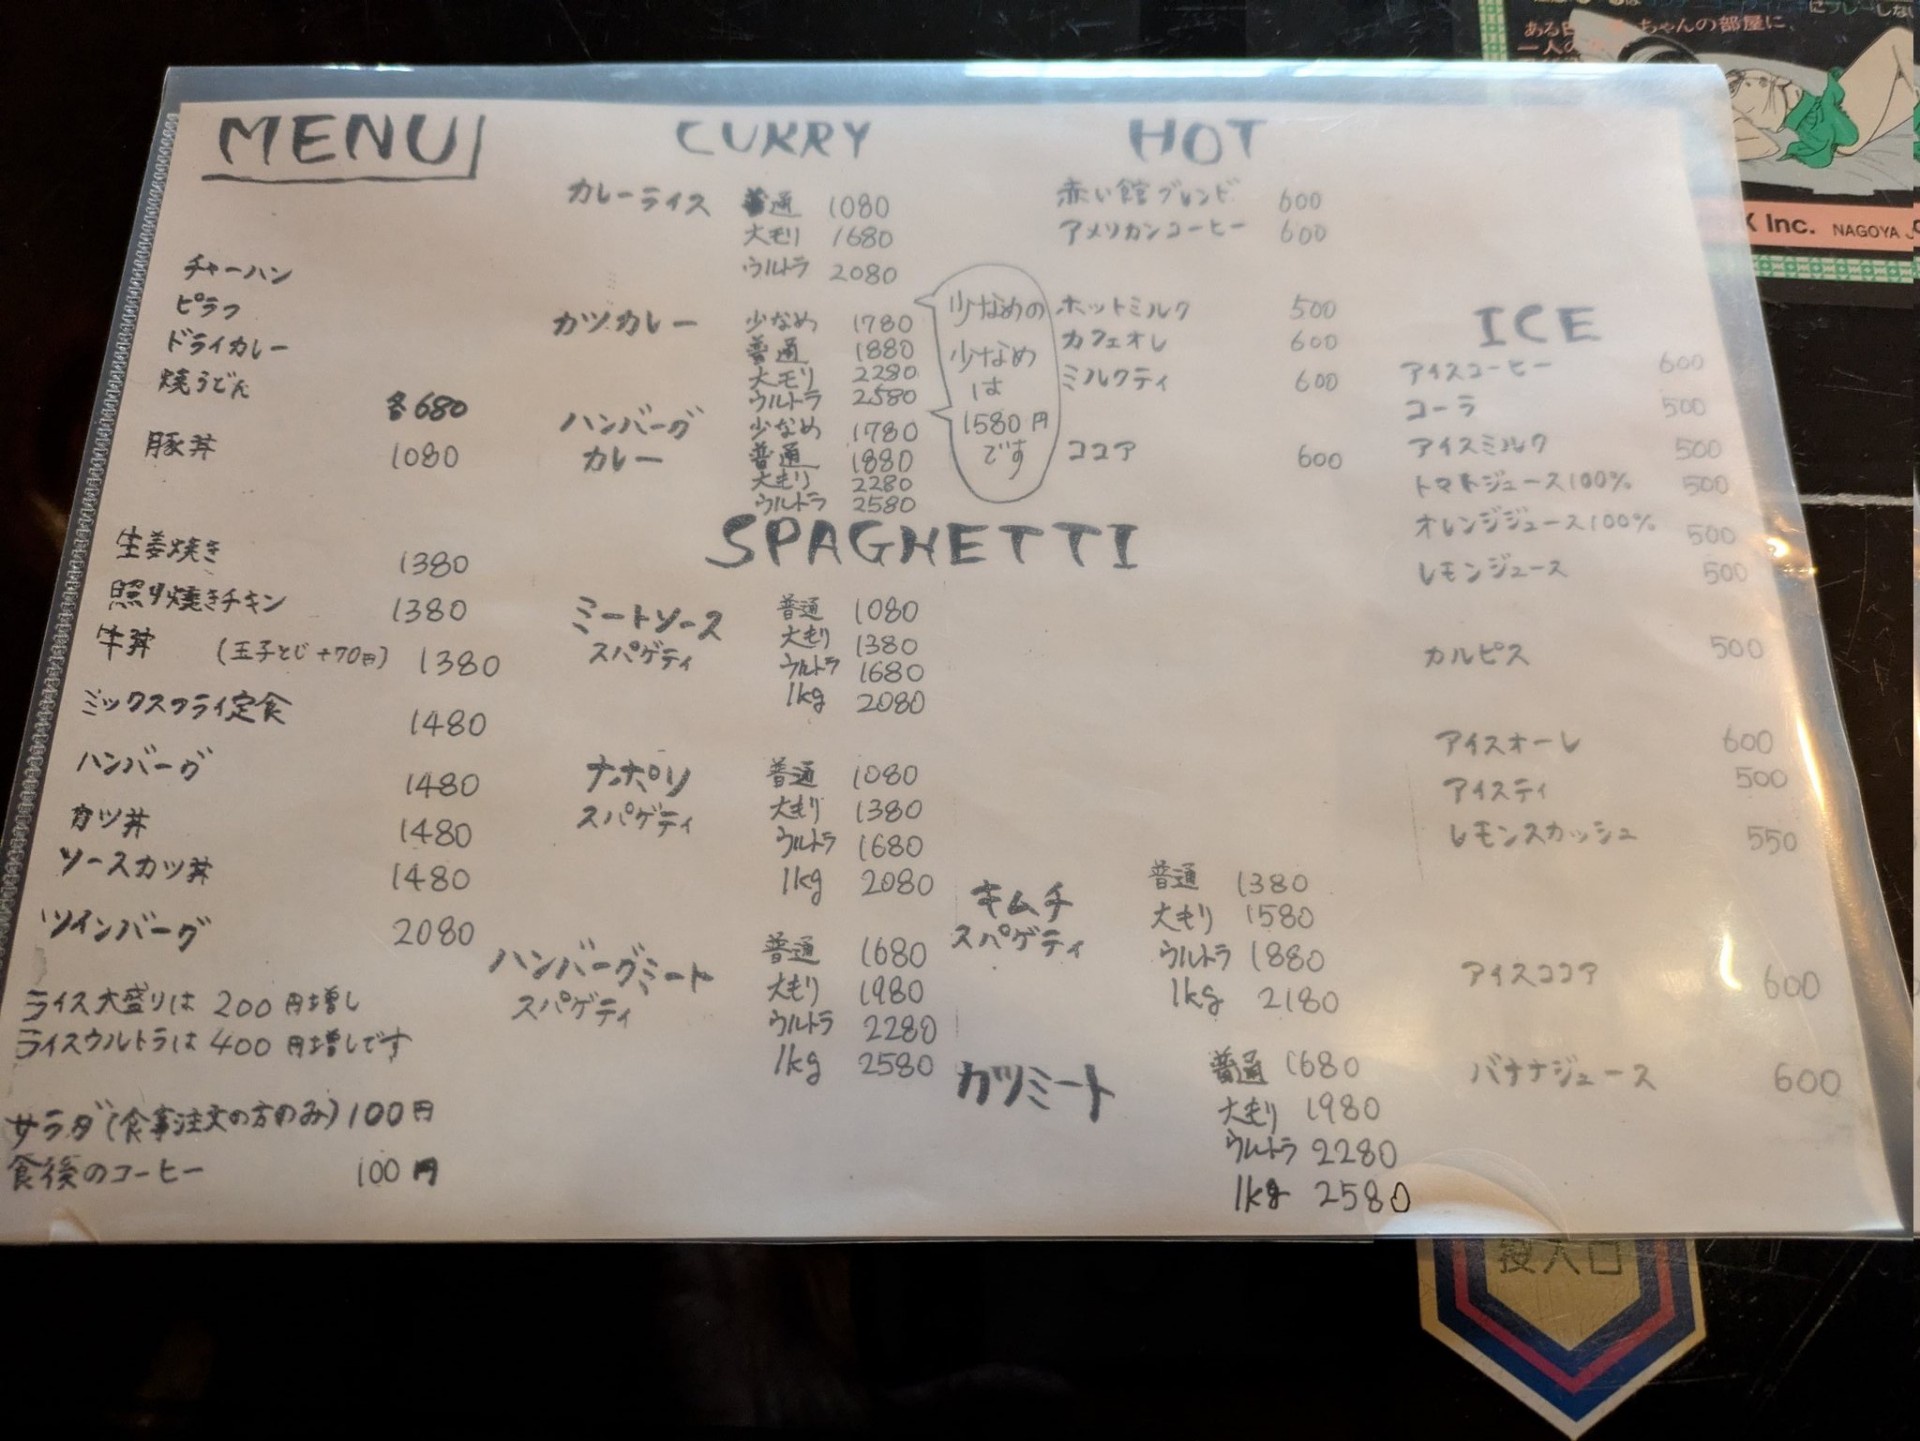 MENU
チャーハン
ピラフ
ドライカレー
焼うどん
各680
豚丼 1080
生姜焼き 1380
照り焼きチキン 1380
牛丼 (玉子とじ+70円) 1380
ミックスフライ定食 1480
ハンバーグ 1480
カツ丼 1480
ソースカツ丼 1480
ツインバーグ 2080
ライス大盛りは 200円増し
ライスウルトラは 400円増しです
サラダ(食事注文の方のみ)100円
食後のコーヒー 100円
CURRY
カレーライス 普通 1080
大モリ 1680
ウルトラ 2080
カツカレー 少なめ 1780
普通 1880
大モリ 2280
ウルトラ 2580
ハンバーグ
カレー
少なめ 1780
普通 1880
大もり 2280
ウルトラ 2580
少なめの
少なめ
は
1580円
です
SPAGHETTI
ミートソース
スパゲティ
普通 1080
大もり 1380
ウルトラ 1680
1kg 2080
ナポリ
スパゲティ
普通 1080
大もり 1380
ウルトラ 1680
1kg 2080
ハンバーグミート
スパゲティ
普通 1680
大もり 1980
ウルトラ 2280
1kg 2580
キムチ
スパゲティ
普通 1380
大もり 1580
ウルトラ 1880
1kg 2180
カツミート
普通 1680
大もり 1980
ウルトラ 2280
1kg 2580
HOT
赤い館ブレンド 600
アメリカンコーヒー 600
ホットミルク 500
カフェオレ 600
ミルクティ 600
ココア 600
ICE
アイスコーヒー 600
コーラ 500
アイスミルク 500
トマトジュース100% 500
オレンジジュース100% 500
レモンジュース 500
カルピス 500
アイスオーレ 600
アイスティ 500
レモンスカッシュ 550
アイスココア 600
バナナジュース 600
ちゃんの部屋に、
一人の
Inc. NAGOYA
投入口